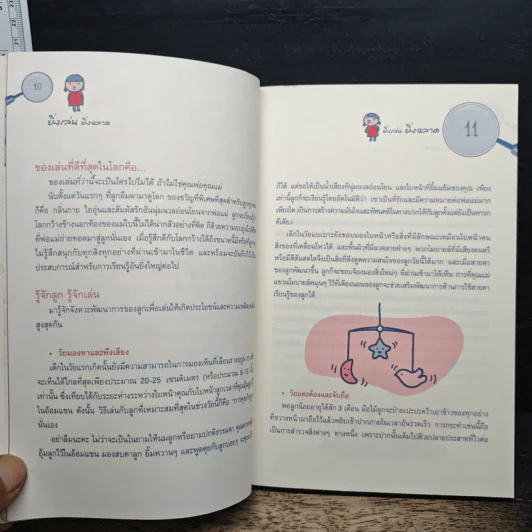 10
ยิ่งเล่น ยิ่งฉลาด
ของเล่นที่ดีที่สุดในโลกคือ...
ของเล่นที่ว่านี้จะเป็นใครไปไม่ได้ ถ้าไม่ใช่คุณพ่อคุณแม่
นับตั้งแต่วันแรกๆ ที่ลูกลืมตามาดูโลก ของขวัญที่พิเศษที่สุดสำหรับลูก
ก็คือ กลิ่นกาย ไออุ่นและสัมผัสรักอันนุ่มนวลอ่อนโยนจากพ่อแม่
โลกกว้างข้างนอกท้องของแม่ใบนี้ไม่ได้น่ากลัวอย่างที่คิด ก็ด้วยความอบอุ่น
ที่พ่อแม่ถ่ายทอดมาสู่ลูกนั่นเอง เมื่อรู้สึกดีกับโลกกว้างใต้
ไม่รู้สึกสนุกกับทุกสิ่งทุกอย่างที่ผ่านเข้ามาในชีวิต และพร้อมจะ
ประสบการณ์สำหรับการเรียนรู้อันยิ่งใหญ่ต่อไป
รู้จักลูก รู้จักเล่น
มารู้จักจังหวะพัฒนาการของลูกเพื่อเล่นให้เกิดประโยชน์และความเพลิดเพลิน
สูงสุดกัน
• วัยมองหาและฟังเสียง
เด็กในวัยแรกเกิดนั้นยังมีความสามารถในการมองเห็นที่เลือนราง
จะเห็นได้ไกลที่สุดเพียงประมาณ 20-25 เซนติเมตร (หรือประมาณ 8-10
เท่านั้น ซึ่งเทียบได้กับระยะห่างระหว่างใบหน้าคุณกับใบหน้าลูกเวลาที่คุณอุ้มลูกไว้
ในอ้อมแขน ดังนั้น วิธีเล่นกับลูกที่เหมาะสมที่สุดในช่วงวัยนี้ก็คือ
นั่นเอง
อย่าลืมนะคะ ไม่ว่าจะเป็นในยามให้นมลูกหรือยามปกติธรรมดา คุณควร
อุ้มลูกไว้ในอ้อมแขน มองสบตาลูก ยิ้มหวานๆ และพูดคุยกับลูกบ่อยๆ
ยิ่งเล่น ยิ่งฉลาด
11
ก็ได้ แต่ขอให้เป็นน้ำเสียงที่นุ่มนวลอ่อนโยน และใบหน้าที่ยิ้มแย้มของคุณ เพียง
เท่านี้ลูกก็จะเรียนรู้โดยอัตโนมัติว่า เขาเป็นที่รักและมีความหมายต่อพ่อแม่มาก
เพียงใด เป็นการสร้างความมั่นใจและทัศนคติในทางบวกให้กับลูกตั้งแต่ยังเป็นทารก
ทีเดียว
เด็กในวัยแบเบาะยังชอบมองใบหน้าหรือสิ่งที่มีลักษณะเหมือนใบหน้าคน
สิ่งของที่เคลื่อนไหวได้ และพื้นผิวที่มีลวดลายต่างๆ พวกโมบายล์ที่มีเสียงดนตรี
หรือมีสีสันสดใสจึงเป็นสิ่งที่ดึงดูดความสนใจของลูกวัยนี้ได้มาก และเมื่อสายตา
ของลูกพัฒนาขึ้น ลูกก็จะชอบจ้องมองสิ่งใหม่ๆ ที่ผ่านเข้ามาให้เห็น การที่คุณแม่
แขวนโมบายล์หมุนๆ ไว้ที่เตียงนอนของลูกจะช่วยเสริมพัฒนาการด้านการใช้สายตา
เรียนรู้ของลูกได้
• วัยแตะต้องและจับถือ
พอลูกน้อยอายุได้สัก 3 เดือน มือไม้ลูกจะป่ายเปะปะคว้าเอาข้าวของทุกอย่าง
ที่ขวางหน้ามาถือไว้แล้วหยิบเข้าปากภายในเวลาอันรวดเร็ว การกระทำเช่นนี้ถือ
เป็นการสำรวจสิ่งต่างๆ ทางหนึ่ง เพราะปากนั้นเต็มไปด้วยปลายประสาทที่ไวต่อ